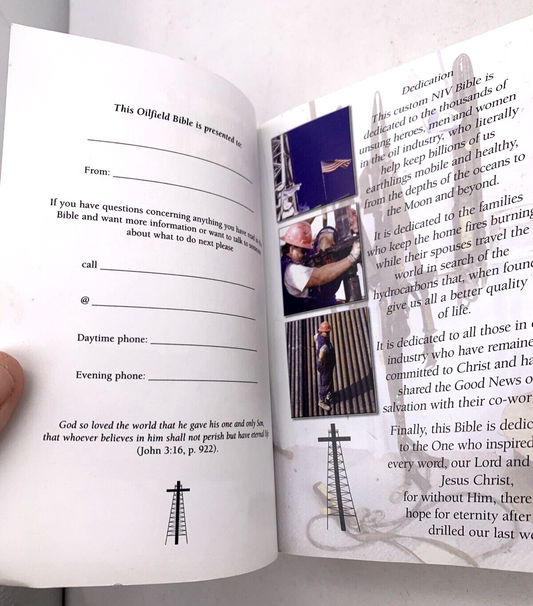 This Oilfield Bible is presented to:
From:
If you have questions concerning anything you have read in this
Bible and want more information or want to talk to someone
about what to do next please
call
@
Daytime phone:
Evening phone:
God so loved the world that he gave his one and only Son,
that whoever believes in him shall not perish but have eternal life
(John 3:16, p. 922).
Dedication
This custom NIV Bible is
dedicated to the thousands of
unsung heroes, men and women
in the oil industry, who literally
help keep billions of us
earthlings mobile and healthy,
from the depths of the oceans to
the Moon and beyond.
It is dedicated to the families
who keep the home fires burning
while their spouses travel the
world in search of the
hydrocarbons that, when found
give us all a better quality
of life.
It is dedicated to all those in
industry who have remaine
committed to Christ and ha
shared the Good News o
salvation with their co-wor
Finally, this Bible is dedic
to the One who inspired
every word, our Lord and
Jesus Christ,
for without Him, there
hope for eternity after
drilled our last we